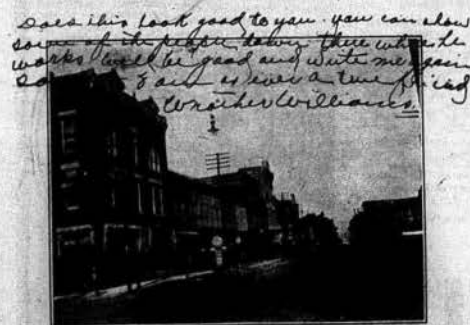 Does this look good to you. you can show
some of the people down there where he
works. Well be good and write me again
I am as ever a true friend
Williams.